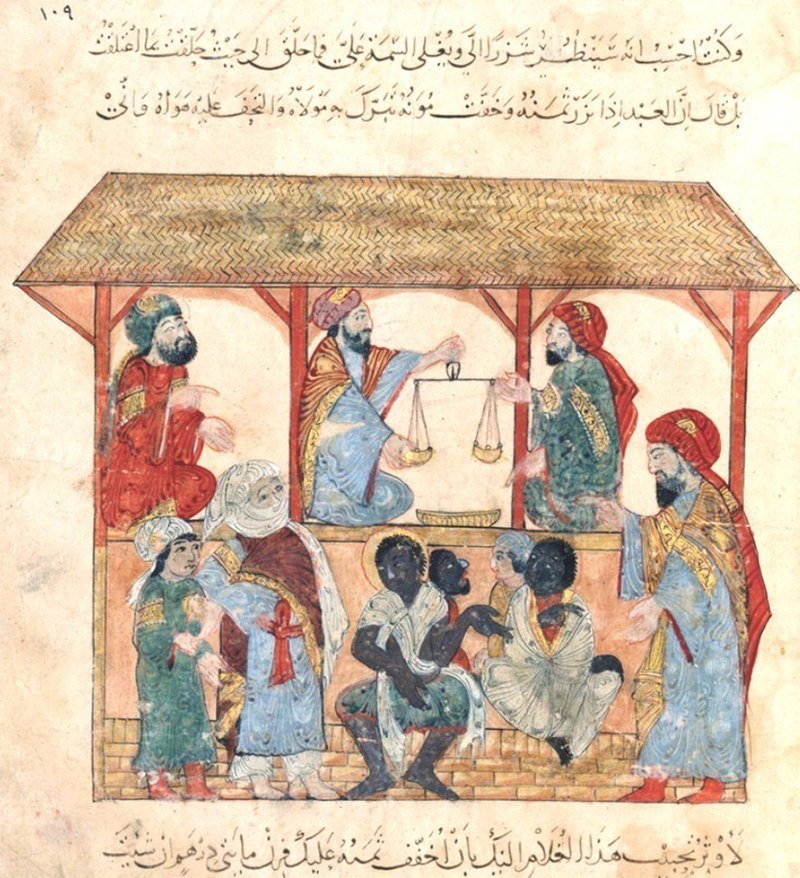 ١٠٩
وكنت احسب انه سينظر شزرا الي ويغلي السيمة علي فما حلق الى حيث حلقت ولا اعتلق بما اعتلقت
بل قال ان العبد اذا نزر ثمنه وخفت مونه تبرك به مولاه والتحف عليه هواه واني
لاوثر تحبيب هذا الغلام اليك بان اخفف ثمنه عليك فزن مائتي درهم ان شئت